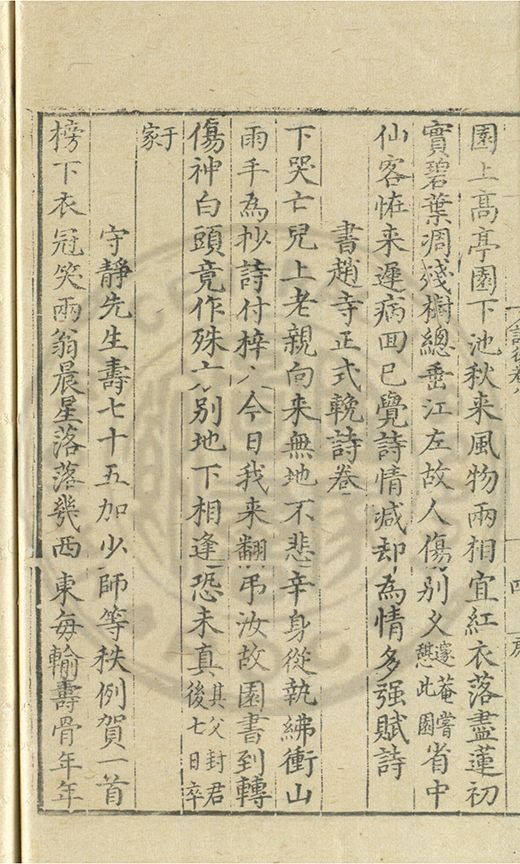 園上高亭園下池秋来風物兩相宜紅衣落盡蓮初
實碧葉凋殘樹總垂江左故人傷別久邃菴嘗憇此園省中
仙客恠来遲病囬已覺詩情減却為情多强賦詩
書趙寺正式輓詩卷
下哭亡兒上老親向来無地不悲辛身從執紼衝山
雨手為抄詩付梓人今日我来翻弔汝故園書到轉
傷神白頭竟作殊方別地下相逢恐未真其父封君後七日卒
于家
守靜先生壽七十五加少師等秩例賀一首
榜下衣冠笑兩翁晨星落落幾西東每輸壽骨年年